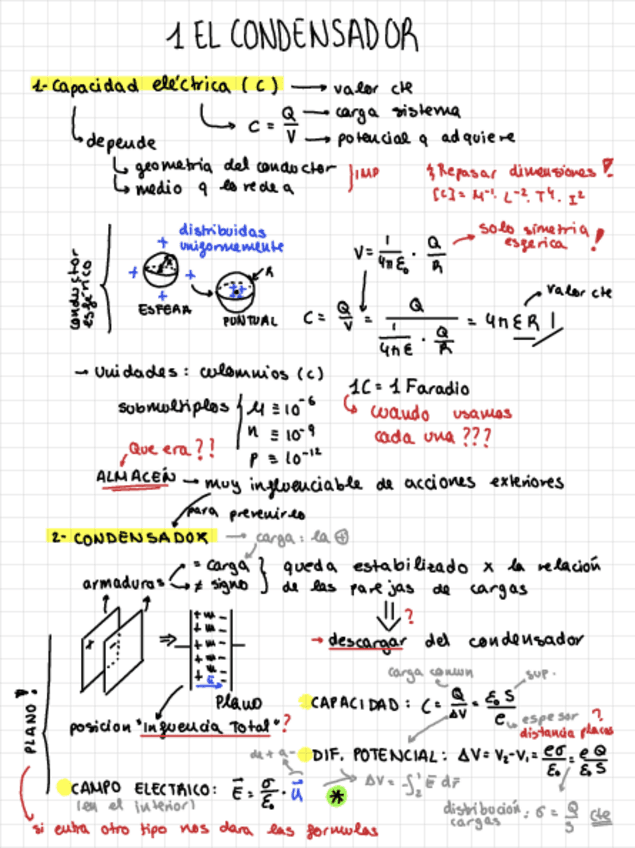 1 EL CONDENSADOR
1- Capacidad eléctrica (C) → valor cte
C = Q/V → carga sistema
→ potencial q adquiere
depende
geometría del conductor
medio q lo rodea
} IMP
¡Repasar dimensiones!
[C] = M⁻¹. L⁻². T⁴. I²
conductor esférico
distribuidas uniformemente
+ + + +
R
ESFERA
R
PUNTUAL
V = 1/4πε₀ · Q/R → solo simetría esférica !
C = Q/V = Q/(1/4πε · Q/R) = 4πεR → valor cte
→ Unidades: culomnios (c)
1C = 1 Faradio
submultiplos
μ ≡ 10⁻⁶
n ≡ 10⁻⁹
p ≡ 10⁻¹²
cuando usamos
cada una ???
Que era ??
ALMACEN → muy influenciable de acciones exteriores
para prevenirlo
2- CONDENSADOR → carga: la ⊕
armaduras
= carga
≠ signo
} queda estabilizado x la relación
de las parejas de cargas
⇓ ?
→ descargar del condensador
PLANO!
+ -
⇒
Plano
posicion "Influencia Total"?
carga comun
sup.
CAPACIDAD: C = Q/ΔV = ε₀ S/e
espesor ?
distancia placas
DIF. POTENCIAL: ΔV = V₂-V₁ = eσ/ε₀ = e Q/ε₀ S
CAMPO ELECTRICO: E⃗ = σ/ε₀ · u⃗
(en el interior)
*
ΔV = -∫₁² E⃗ dr⃗
distribución cargas : σ = Q/S cte
si entra otro tipo nos dara las formulas